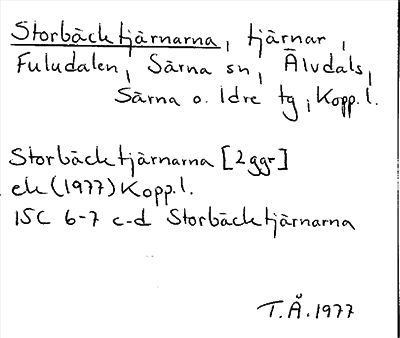 Storbäcktjärnarna, tjärnar,
Fuludalen, Särna sn, Älvdals,
Särna o. Idre tg, Kopp.l.
Storbäcktjärnarna [2ggr]
ek (1977) Kopp.l.
15C 6-7 c-d Storbäcktjärnarna
T.Å. 1977